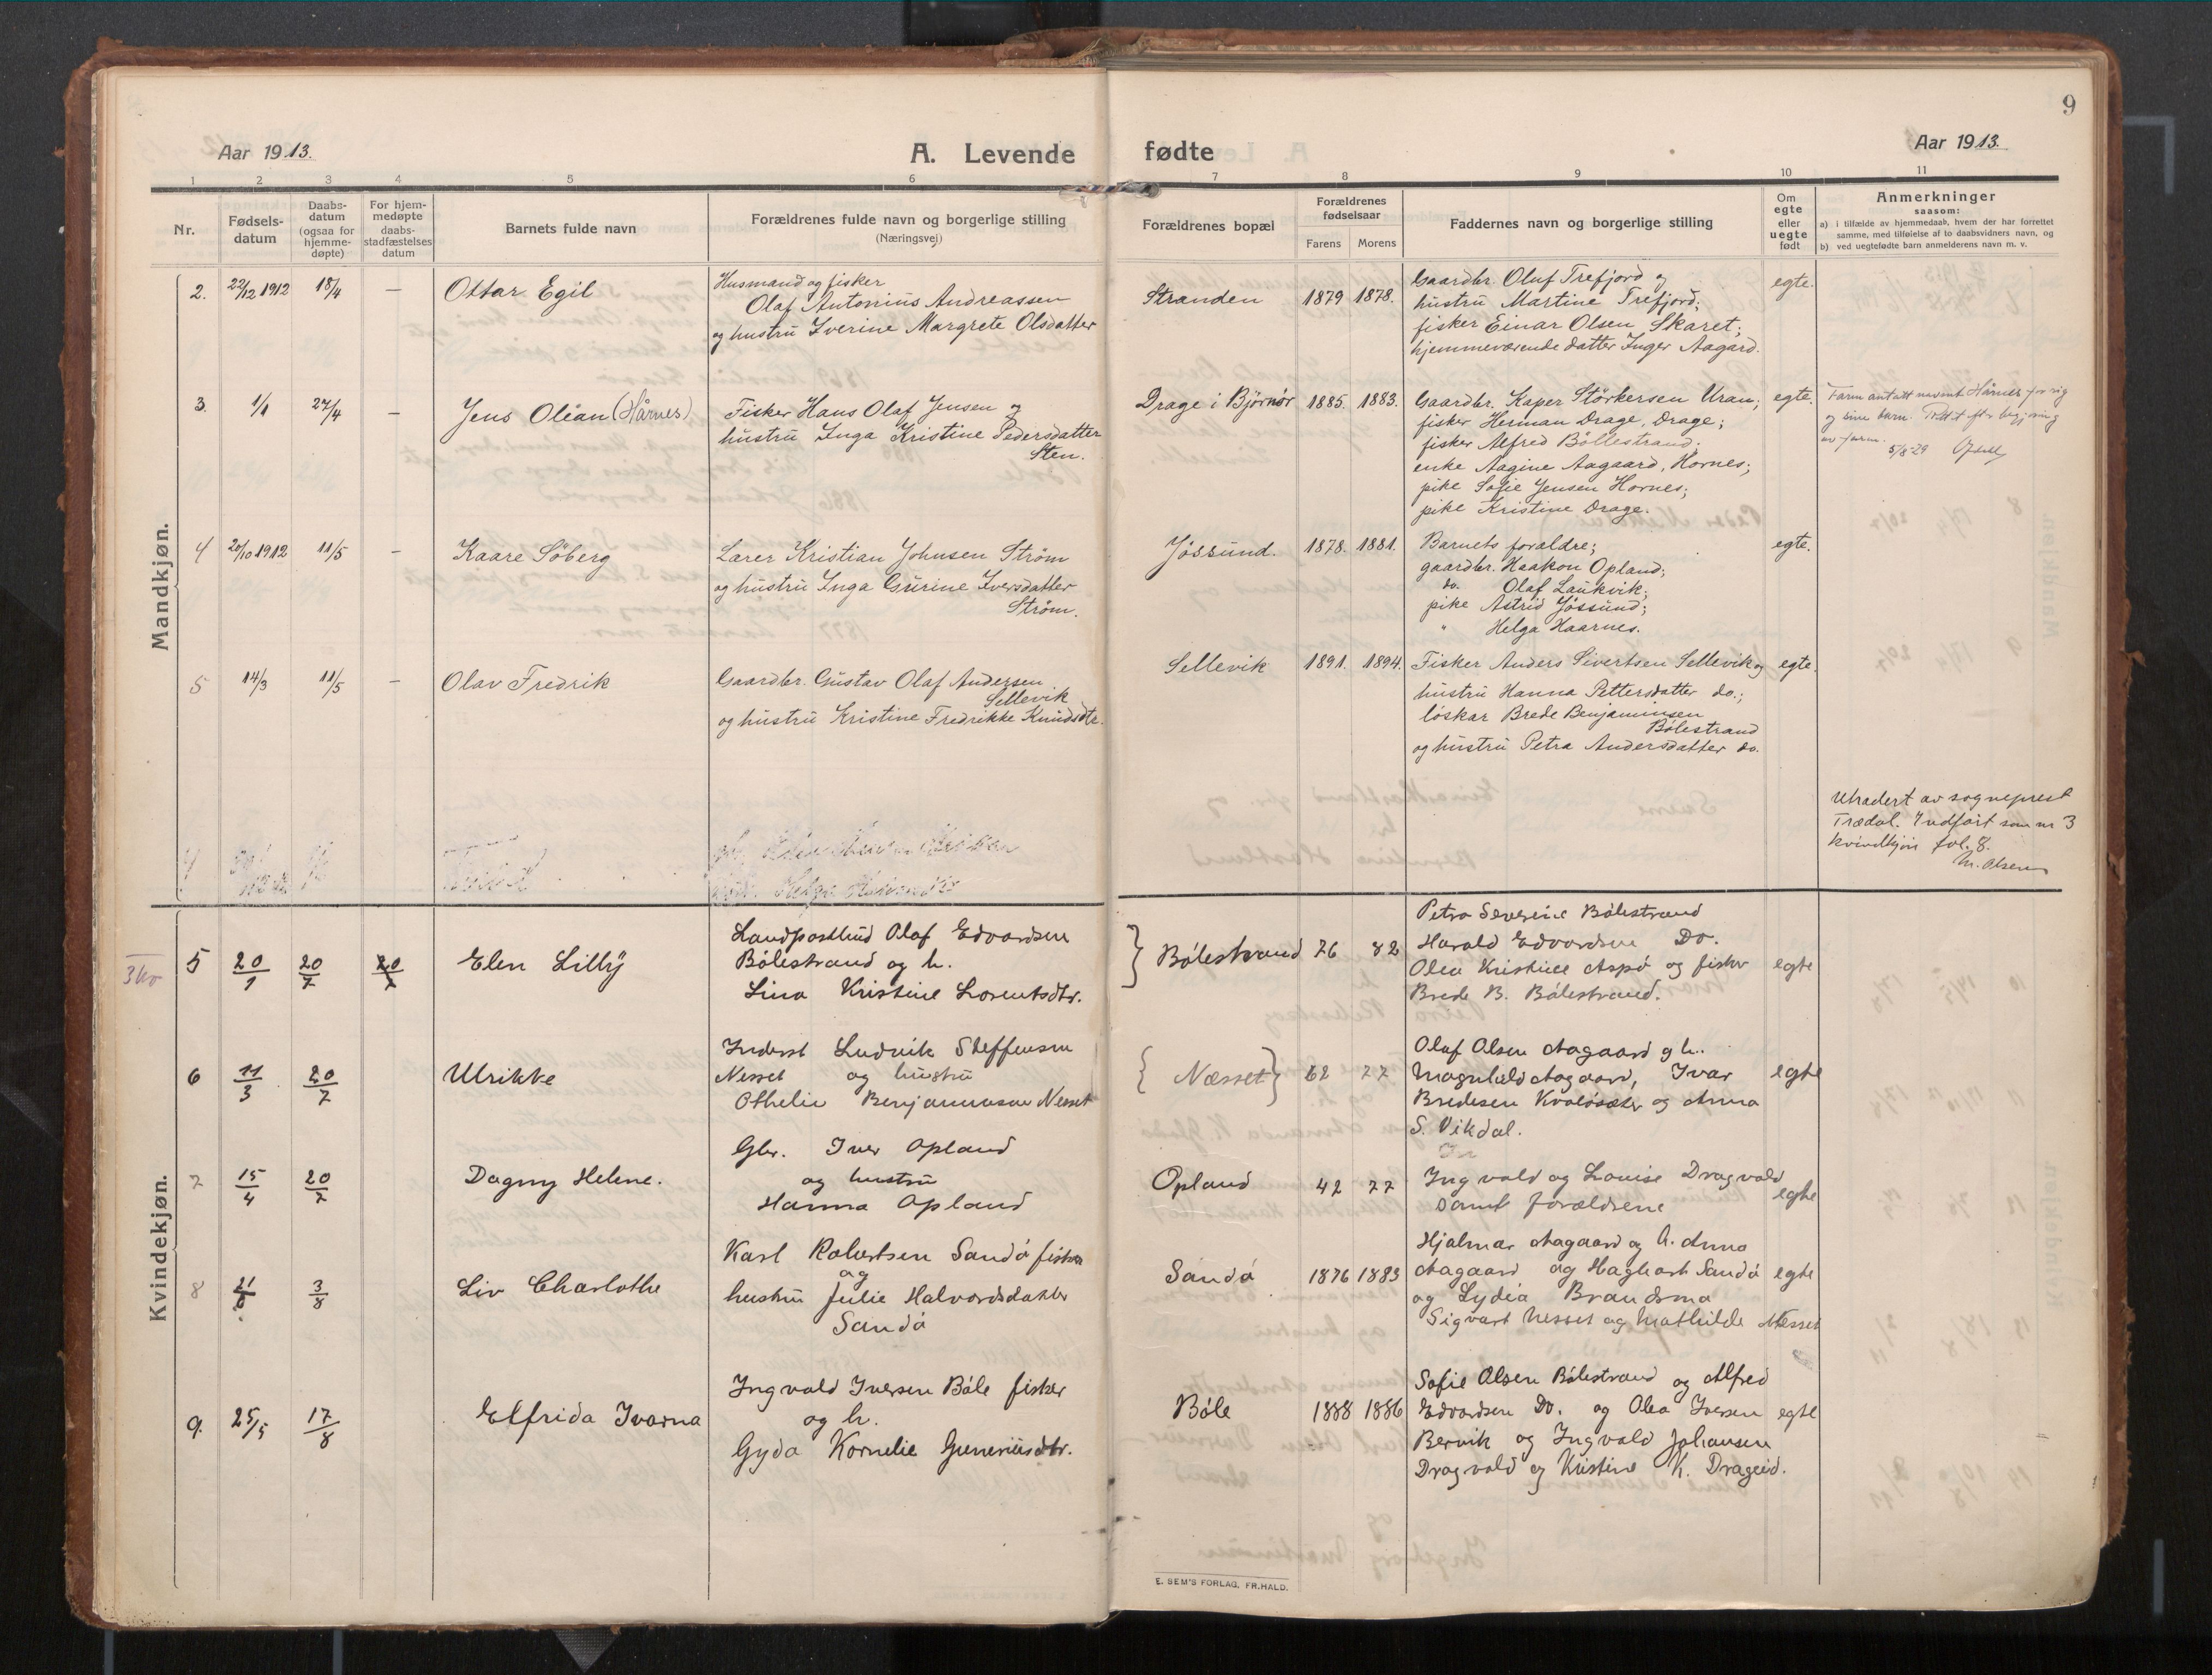 9
Aar 1913.
A. Levende fødte
Aar 1913.
1 2 3 4 5 6 7 8 9 10 11
Nr.
Fødsels-
datum
Daabs-
datum
(ogsaa for
hjemme-
døpte)
For hjem-
medøpte
daabs-
stadfæstelses
datum
Barnets fulde navn
Forældrenes fulde navn og borgerlige stilling
(Næringsvej)
Forældrenes bopæl
Forældrenes
fødselsaar
Farens Morens
Faddernes navn og borgerlige stilling
Om
egte
eller
uegte
født
Anmerkninger
saasom:
a) i tilfælde av hjemmedaab, hvem der har forrettet
samme, med tilføielse af to daabsvidners navn, og
b) ved uegtefødte barn anmelderens navn m. v.
Mandkjøn.
2. 22/12 1912 18/4 — Ottar Egil
Husmand og fisker
Olaf Antonius Andreassen
og hustru Iverine Margrete Olsdatter
Stranden 1879 1878.
Gaardbr. Oluf Trefjord og
hustru Martine Trefjord;
fisker Einar Olsen Skaret;
hjemmeværende datter Inger Aagard.
egte.
3. 1/1 27/4 — Jens Olean (Hårnes)
Fisker Hans Olaf Jensen og
hustru Inga Kristine Pedersdatter
Sten.
Drage i Bjørnør 1885. 1883.
Gaardbr. Kaper Störkersen Uran;
fisker Herman Drage, Drage;
fisker Alfred Böllestrand;
enke Aagine Aagaard, Hornes;
pike Sofie Jensen Hornes;
pike Kristine Drage.
egte.
Farm antatt navnet Hårnes for sig
og sine barn.
av farm.
5/8 29
4 20/10 1912 11/5 — Kaare Söberg
Lærer Kristian Johnsen Ström
og hustru Inga Gurine Iversdatter
Ström.
Jössund. 1878. 1881.
Barnets forældre;
gaardbr. Haakon Opland;
do. Olaf Laukvik;
pike Astrid Jössund;
" Helga Haarnes.
egte.
5 14/3 11/5 — Olav Fredrik
Gaardbr. Gustav Olaf Andersen
Sellevik
og hustru Kristine Fredrikke Knudsdtr.
Sellevik 1891. 1894.
Fisker Anders Sivertsen Sellevik og
hustru Hanna Pettersdatter do.;
löskar Brede Benjaminsen
Bölestrand
og hustru Petra Andersdatter do.
egte.
Utradert av sogneprest
Trædal. Indført som nr 3
kvindkjön fol. 8.
M. Olsen
Kvindekjøn.
3 kr
5 20/1 20/7 20/7 Elen Lilly
Landpostbud Olaf Edvardsen
Bölestrand og h.
Lina Kristine Lorentsdtr.
Bölestrand 76 82
Petra Severine Bölestrand
Harald Edvardsen Do.
Olea Kristine Aspö og fisker
Brede B. Bölestrand.
egte
6 11/3 20/7 Ulrikke
Inderst Ludvik Steffensen
Nesset og hustru
Othelie Benjaminsen Nesset
Næsset 62 77
Olaf Olsen Aagaard og h.
Magnhild Aagaard, Ivar
Bredesen Kvalösæter og Anna
S. Vikdal.
egte
7 15/4 20/7 Dagny Helene.
Gbr. Iver Opland
og hustru
Hanna Opland
Opland 42 77
Ingvald og Louise Dragvald
samt forældrene
egte
8 21/6 3/8 Liv Charlothe
Karl Robertsen Sandö fisker
og
hustru Julie Halvordsdatter
Sandö
Sandö 1876 1883
Hjalmar Aagaard og h. Anna
Aagaard og Hagbart Sandö
og Lydia Brandsmo
Sigvart Nesset og Mathilde Nesset
egte
9. 25/5 17/8 Elfrida Ivarna
Ingvald Iversen Böle fisker
og h.
Gyda Kornelie Guneriusdtr.
Böle 1888 1886
Sofie Olsen Bölestrand og Alfred
Edvardsen Do. og Olea Iversen
Bervik og Ingvald Johansen
Dragvald og Kristine K. Drageid.
egte
E. SEM'S FORLAG, FR.HALD.